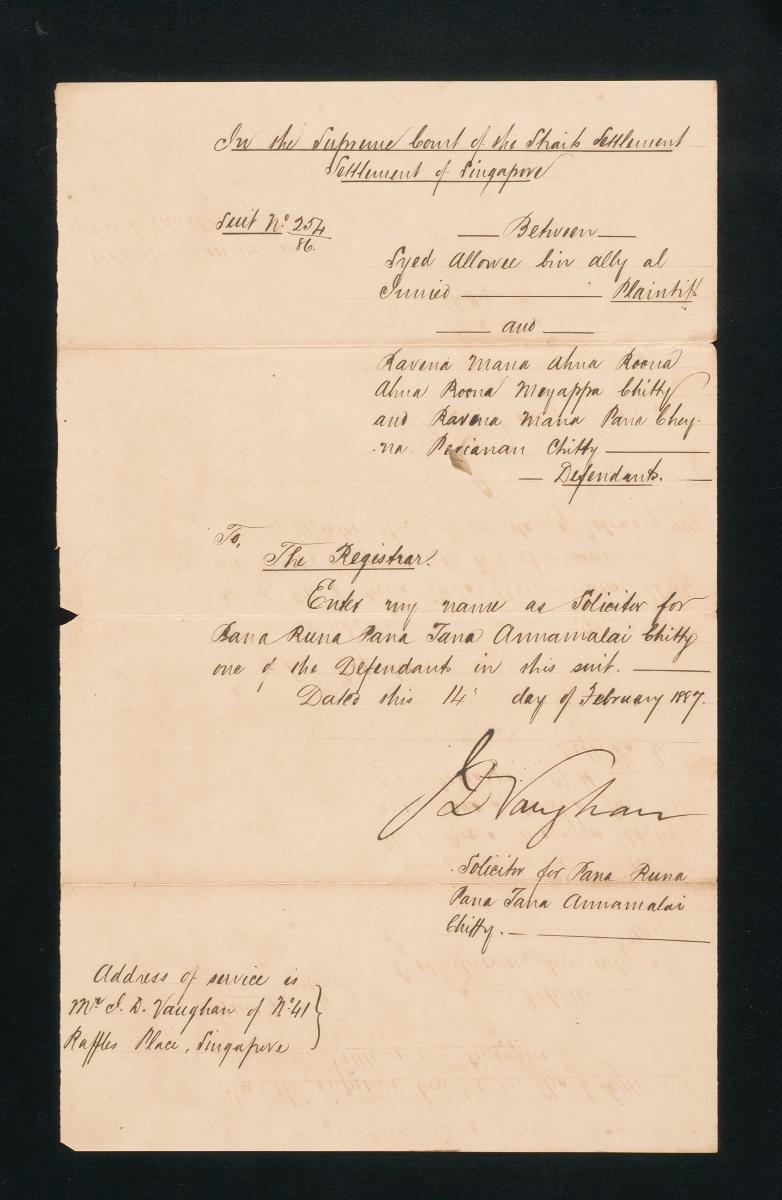 In the Supreme Court of the Straits Settlement
Settlement of Singapore
Suit No. 254
86.
Between
Syed Allowee bin Ally al
Junied Plaintiff
and
Ravena Mana Ahna Roona
Ahna Roona Meyappa Chitty
and Ravena Mana Pana Chey-
na Perianan Chitty
Defendants.
To,
The Registrar.
Enter my name as Solicitor for
Pana Runa Pana Tana Annamalai Chitty
one of the Defendants in this suit.
Dated this 14 day of February 1887.
J D Vaughan
Solicitor for Pana Runa
Pana Tana Annamalai
Chitty.
Address of service is
Mr. J. D. Vaughan of No. 41
Raffles Place, Singapore